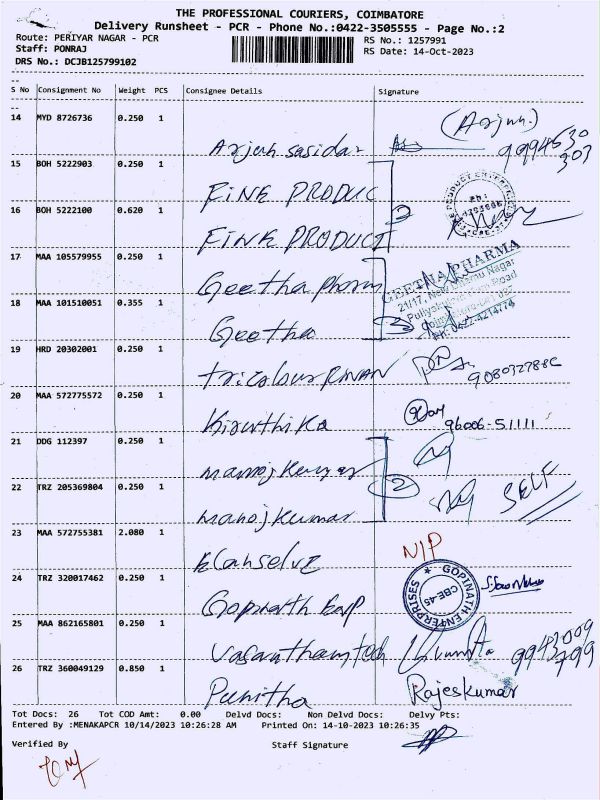 THE PROFESSIONAL COURIERS, COIMBATORE
Delivery Runsheet - PCR - Phone No.:0422-3505555 - Page No.:2
Route: PERIYAR NAGAR - PCR
RS No.: 1257991
Staff: PONRAJ
RS Date: 14-Oct-2023
DRS No.: DCJB125799102
S No Consignment No Weight PCS Consignee Details Signature
14 MYD 8726736 0.250 1
(Arjun.)
Arjun sasidar
9994530
303
15 BOH 5222903 0.250 1
FINE PRODUC
16 BOH 5222100 0.620 1
2
FINE PRODUCT
17 MAA 105579955 0.250 1
GEETHA PHARMA
Geetha pharm
18 MAA 101510051 0.355 1
2
Ph: 0422-4214774
Geetha
19 HRD 20302001 0.250 1
Tricolour
20 MAA 572775572 0.250 1
Kiruthika
96006-51111
21 DDG 112397 0.250 1
manoj kumar
22 TRZ 205369804 0.250 1
2
SELF
manoj kumar
23 MAA 572755381 2.080 1
N/P
Elanselvi
24 TRZ 320017462 0.250 1
GOPINATH ENTERPRISES
CBE-45
Gopinath
25 MAA 862165801 0.250 1
Vasantham tech
9943009
799
26 TRZ 360049129 0.850 1
Punitha
Rajeskumar
Tot Docs: 26 Tot COD Amt: 0.00 Delvd Docs: Non Delvd Docs: Delvy Pts:
Entered By :MENAKAPCR 10/14/2023 10:26:28 AM Printed On: 14-10-2023 10:26:35
Verified By
Staff Signature